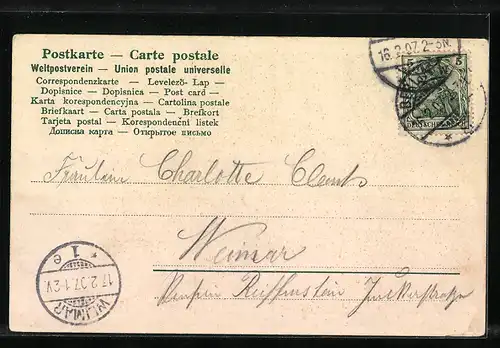 Postkarte — Carte postale
Weltpostverein — Union postale universelle
Correspondenzkarte — Levelező-Lap —
Dopisnice — Dopisnica — Post card —
Karta korespondencyjna — Cartolina postale
Briefkaart — Carta postala — Brefkort
Tarjeta postal — Korespondenční listek
Дописна карта — Открытое письмо
16.2.07.2-3N.
5 5
DEUTSCHES
Fräulein Charlotte
Weimar
Pension Reiffenstein Junkerstraße
* 1 e
17.2.07.1-2V.
WEIMAR